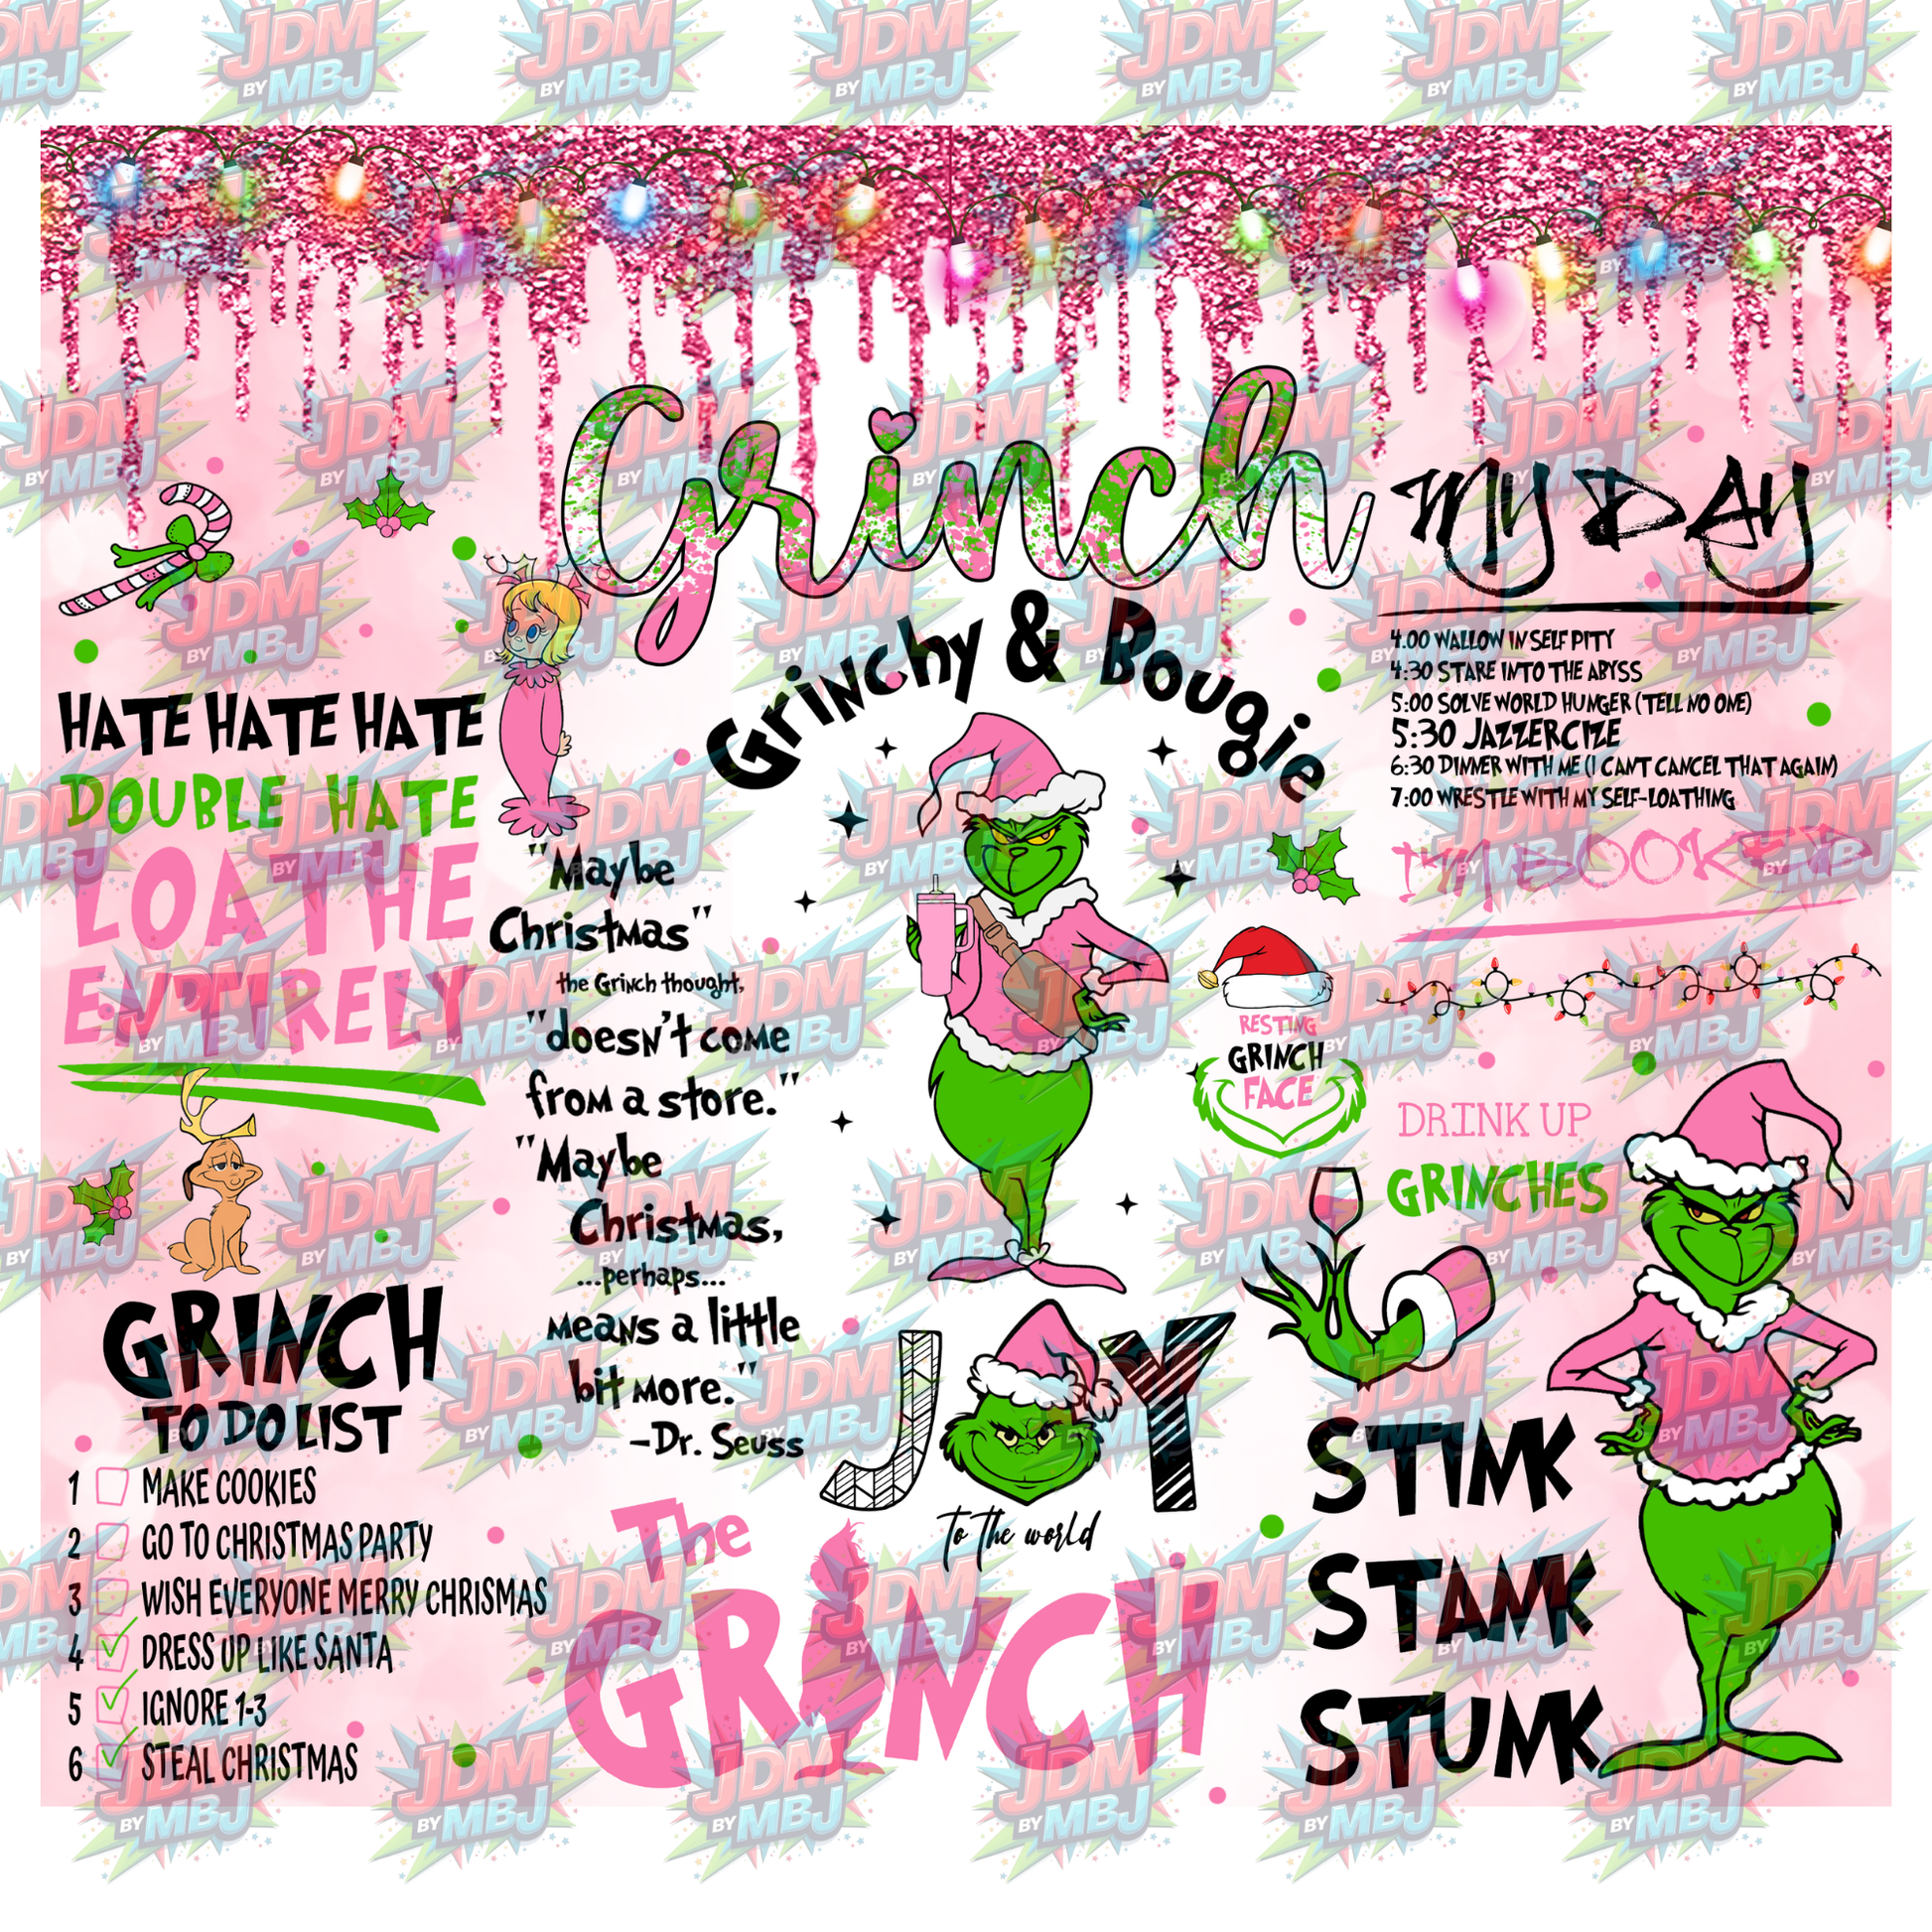 JDM
BY MBJ
Grinch
Grinchy & Bougie
HATE HATE HATE
DOUBLE HATE
LOATHE
ENTIRELY
GRINCH
TO DO LIST
1 MAKE COOKIES
2 GO TO CHRISTMAS PARTY
3 WISH EVERYONE MERRY CHRISMAS
4 DRESS UP LIKE SANTA
5 IGNORE 1-3
6 STEAL CHRISTMAS
"Maybe
Christmas"
the Grinch thought,
"doesn't come
from a store."
"Maybe
Christmas,
...perhaps...
means a little
bit more."
-Dr. Seuss
The
GRINCH
JOY
to the world
RESTING
GRINCH
FACE
MY DAY
4:00 WALLOW IN SELF PITY
4:30 STARE INTO THE ABYSS
5:00 SOLVE WORLD HUNGER (TELL NO ONE)
5:30 JAZZERCIZE
6:30 DINNER WITH ME (I CANT CANCEL THAT AGAIN)
7:00 WRESTLE WITH MY SELF-LOATHING
I'M BOOKED
DRINK UP
GRINCHES
STINK
STANK
STUNK